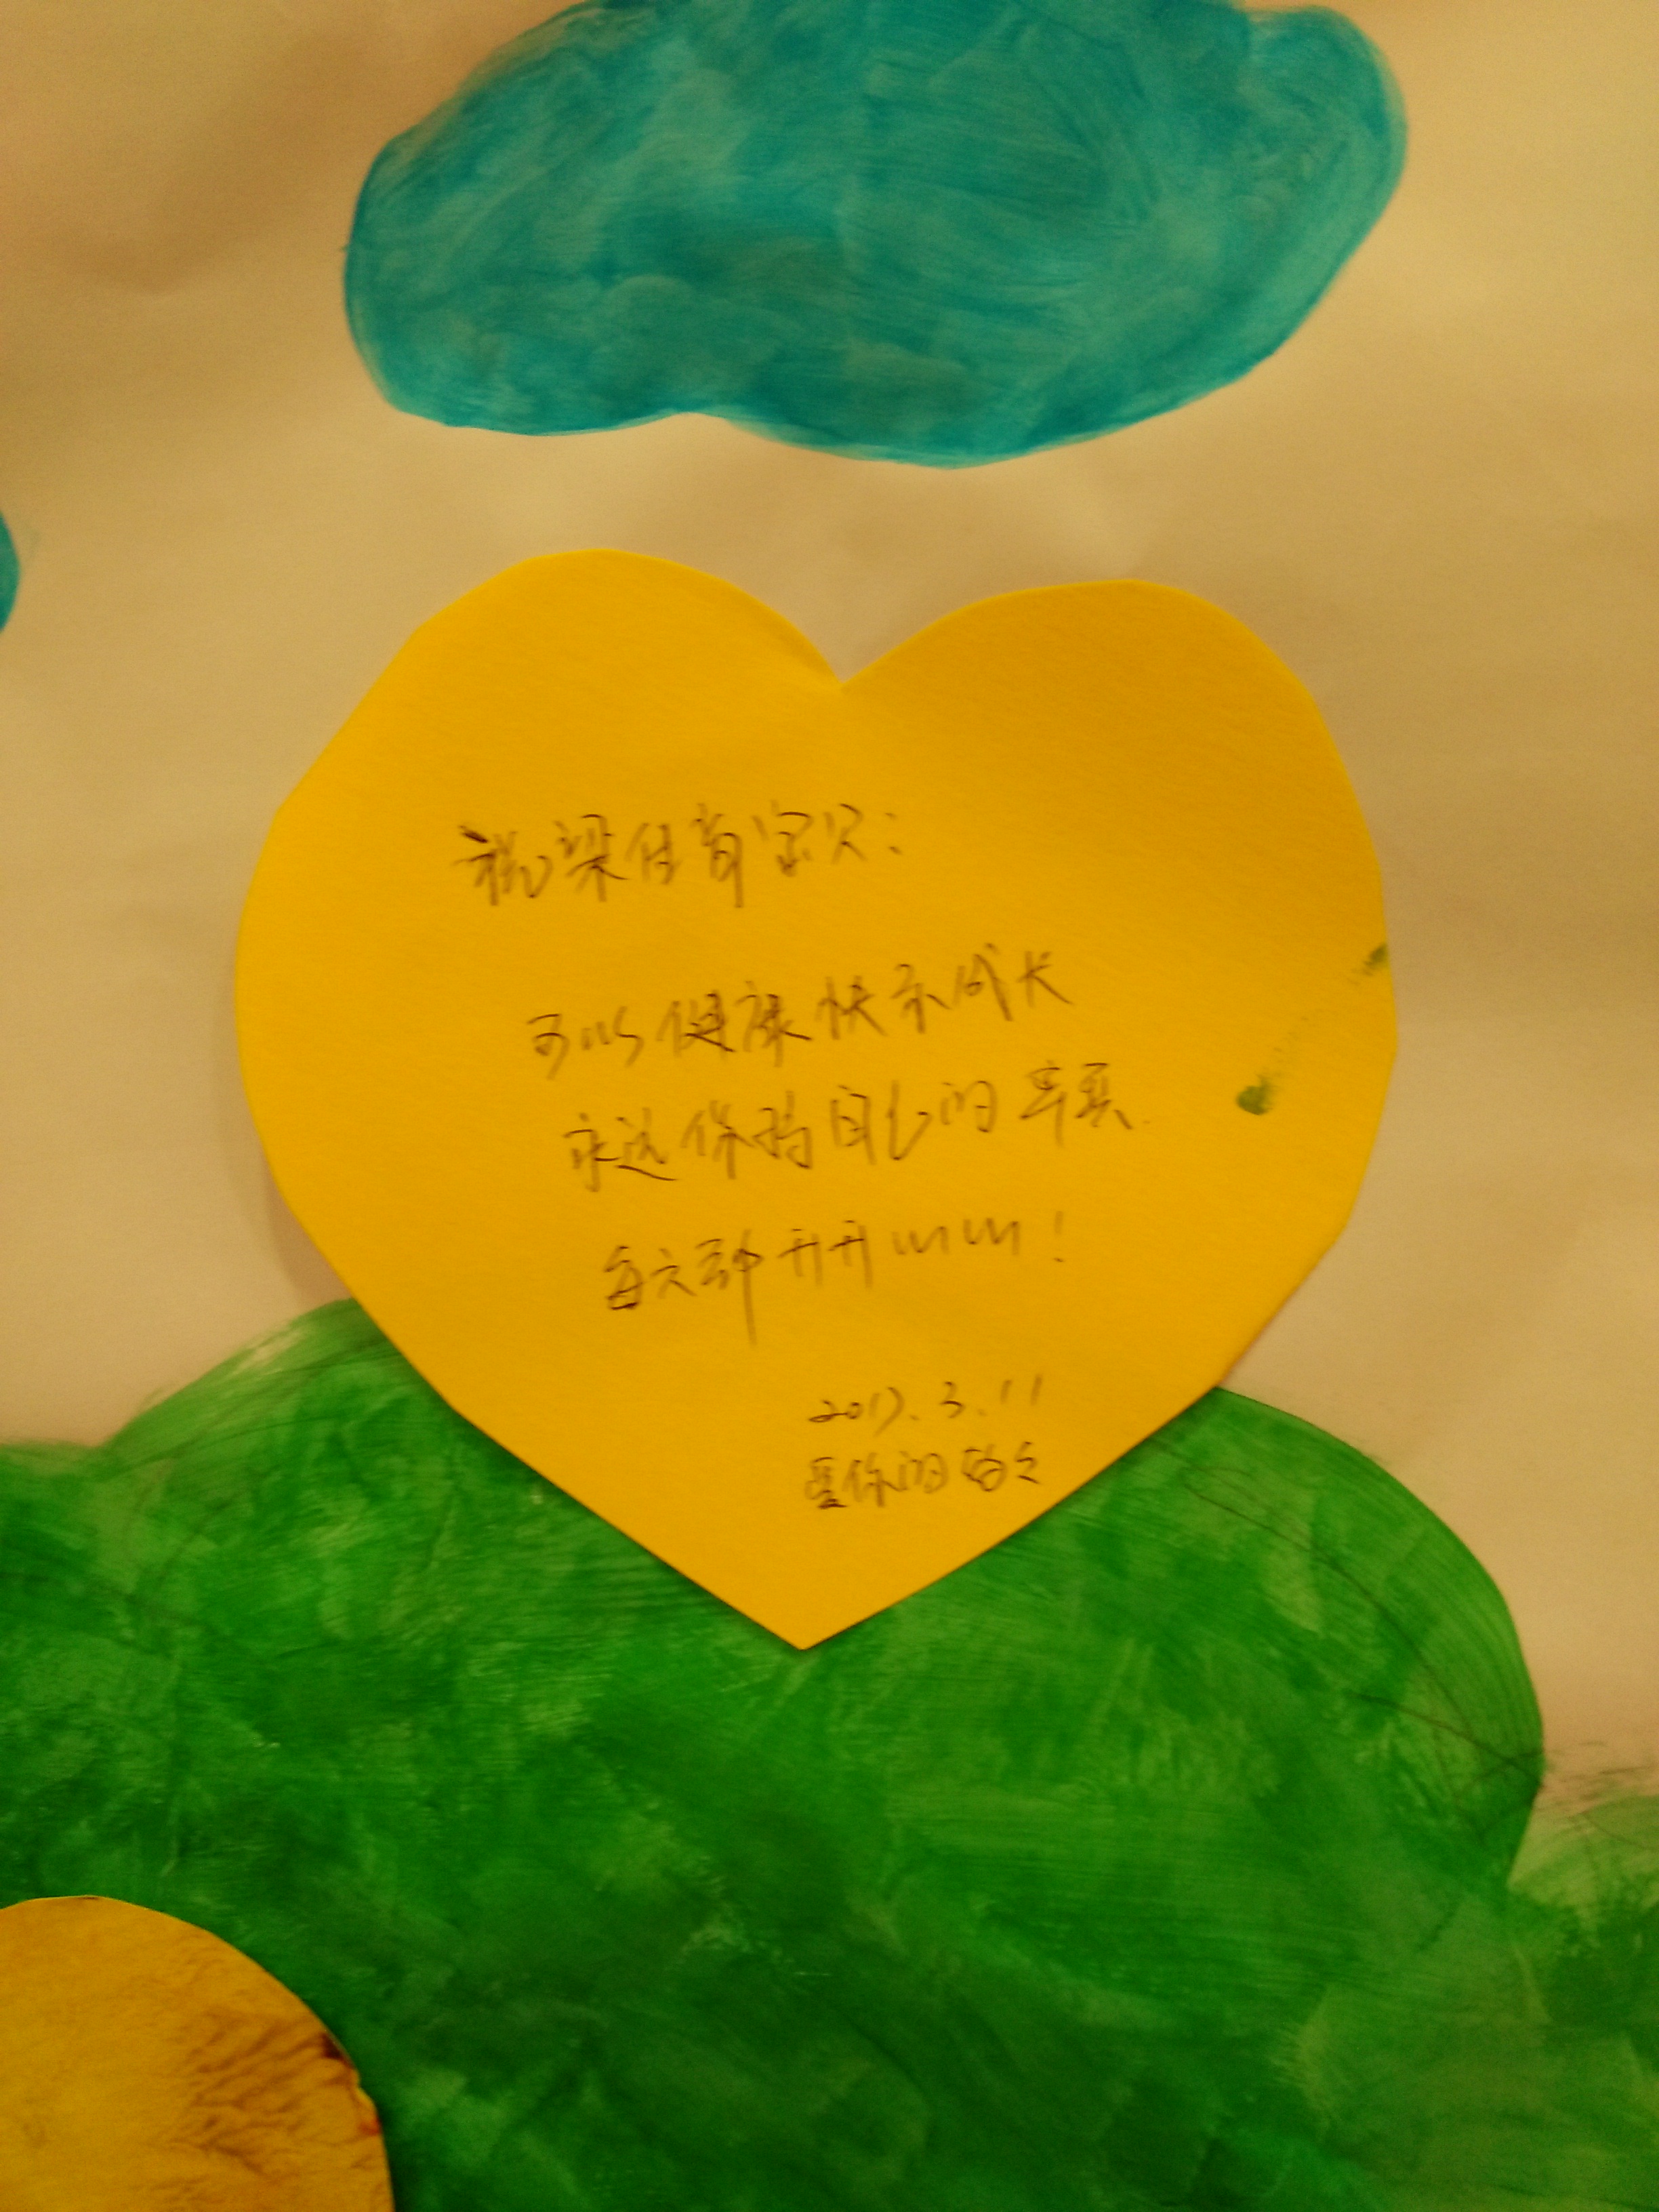 祝梁仕育宝贝：
可以健康快乐成长
永远保持自己的率真
每天都开开心心！
2017.3.11
爱你的